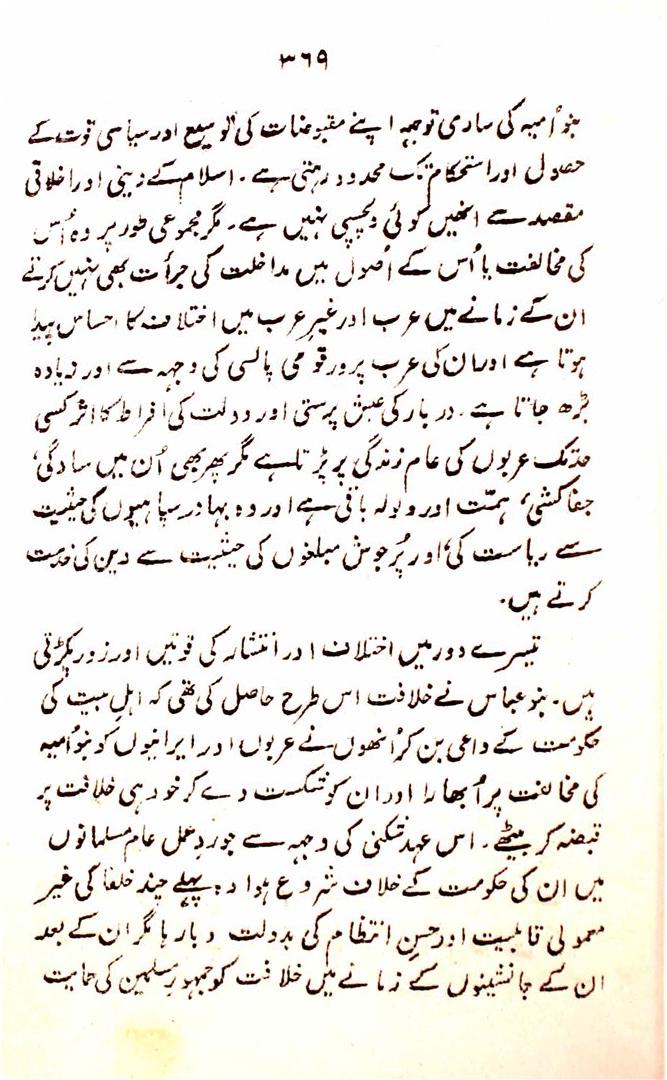 ۳۶۹
بنو اُمیہ کی ساری توجہ اپنے مقبوضات کی توسیع اور سیاسی قوت کے
حصول اور استحکام تک محدود رہتی ہے۔ اسلام کے دینی اور اخلاقی
مقصد سے انھیں کوئی دلچسپی نہیں ہے۔ مگر مجموعی طور پر وہ اُس
کی مخالفت یا اُس کے اُصول میں مداخلت کی جرأت بھی نہیں کرتے
ان کے زمانے میں عرب اور غیر عرب میں اختلاف کا احساس پیدا
ہوتا ہے اور ان کی عرب پرور قومی پالسی کی وجہ سے اور زیادہ
بڑھ جاتا ہے۔ دربار کی عیش پرستی اور دولت کی افراط کا اثر کسی
حد تک عربوں کی عام زندگی پر پڑتا ہے مگر پھر بھی اُن میں سادگی،
جفاکشی، ہمّت اور ولولہ باقی ہے اور وہ بہادر سپاہیوں کی حیثیت
سے ریاست کی، اور پُرجوش مبلغوں کی حیثیت سے دین کی خدمت
کرتے ہیں۔
تیسرے دور میں اختلاف اور انتشار کی قوتیں اور زور پکڑتی
ہیں۔ بنو عباس نے خلافت اس طرح حاصل کی تھی کہ اہلِ بیت کی
حکومت کے داعی بن کر اُنھوں نے عربوں اور ایرانیوں کو بنو اُمیہ
کی مخالفت پر اُبھارا اور ان کو شکست دے کر خود ہی خلافت پر
قبضہ کر بیٹھے۔ اس عہد شکنی کی وجہ سے جو ردِعمل عام مسلمانوں
میں ان کی حکومت کے خلاف شروع ہوا وہ پہلے چند خلفا کی غیر
معمولی قابلیت اور حسنِ انتظام کی بدولت دبا رہا مگر ان کے بعد
ان کے جانشینوں کے زمانے میں خلافت کو جمہورِ مسلمین کی حمایت